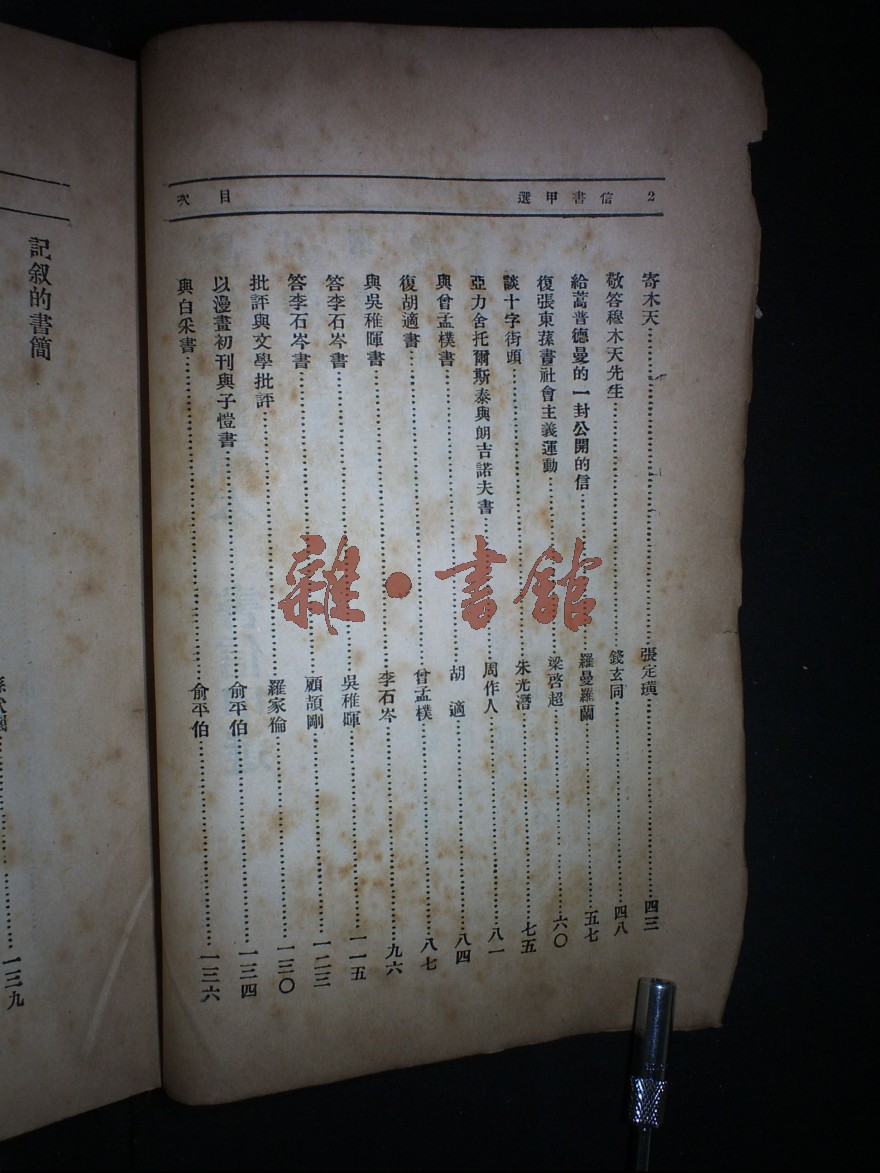 2 信書甲選 目次
寄木天……張定璜……四三
敬答穆木天先生……錢玄同……四八
給蒿普德曼的一封公開的信……羅曼羅蘭……五七
復張東蓀書社會主義運動……梁啓超……六〇
談十字街頭……朱光潛……七五
亞力舍托爾斯泰與朗吉諾夫書……周作人……八一
與曾孟樸書……胡適……八四
復胡適書……曾孟樸……八七
與吳稚暉書……李石岑……九六
答李石岑書……吳稚暉……一一五
答李石岑書……顧頡剛……一二三
批評與文學批評……羅家倫……一三〇
以漫畫初刊與子愷書……俞平伯……一三四
與白采書……俞平伯……一三六
記叙的書簡
一三九
雜·書館